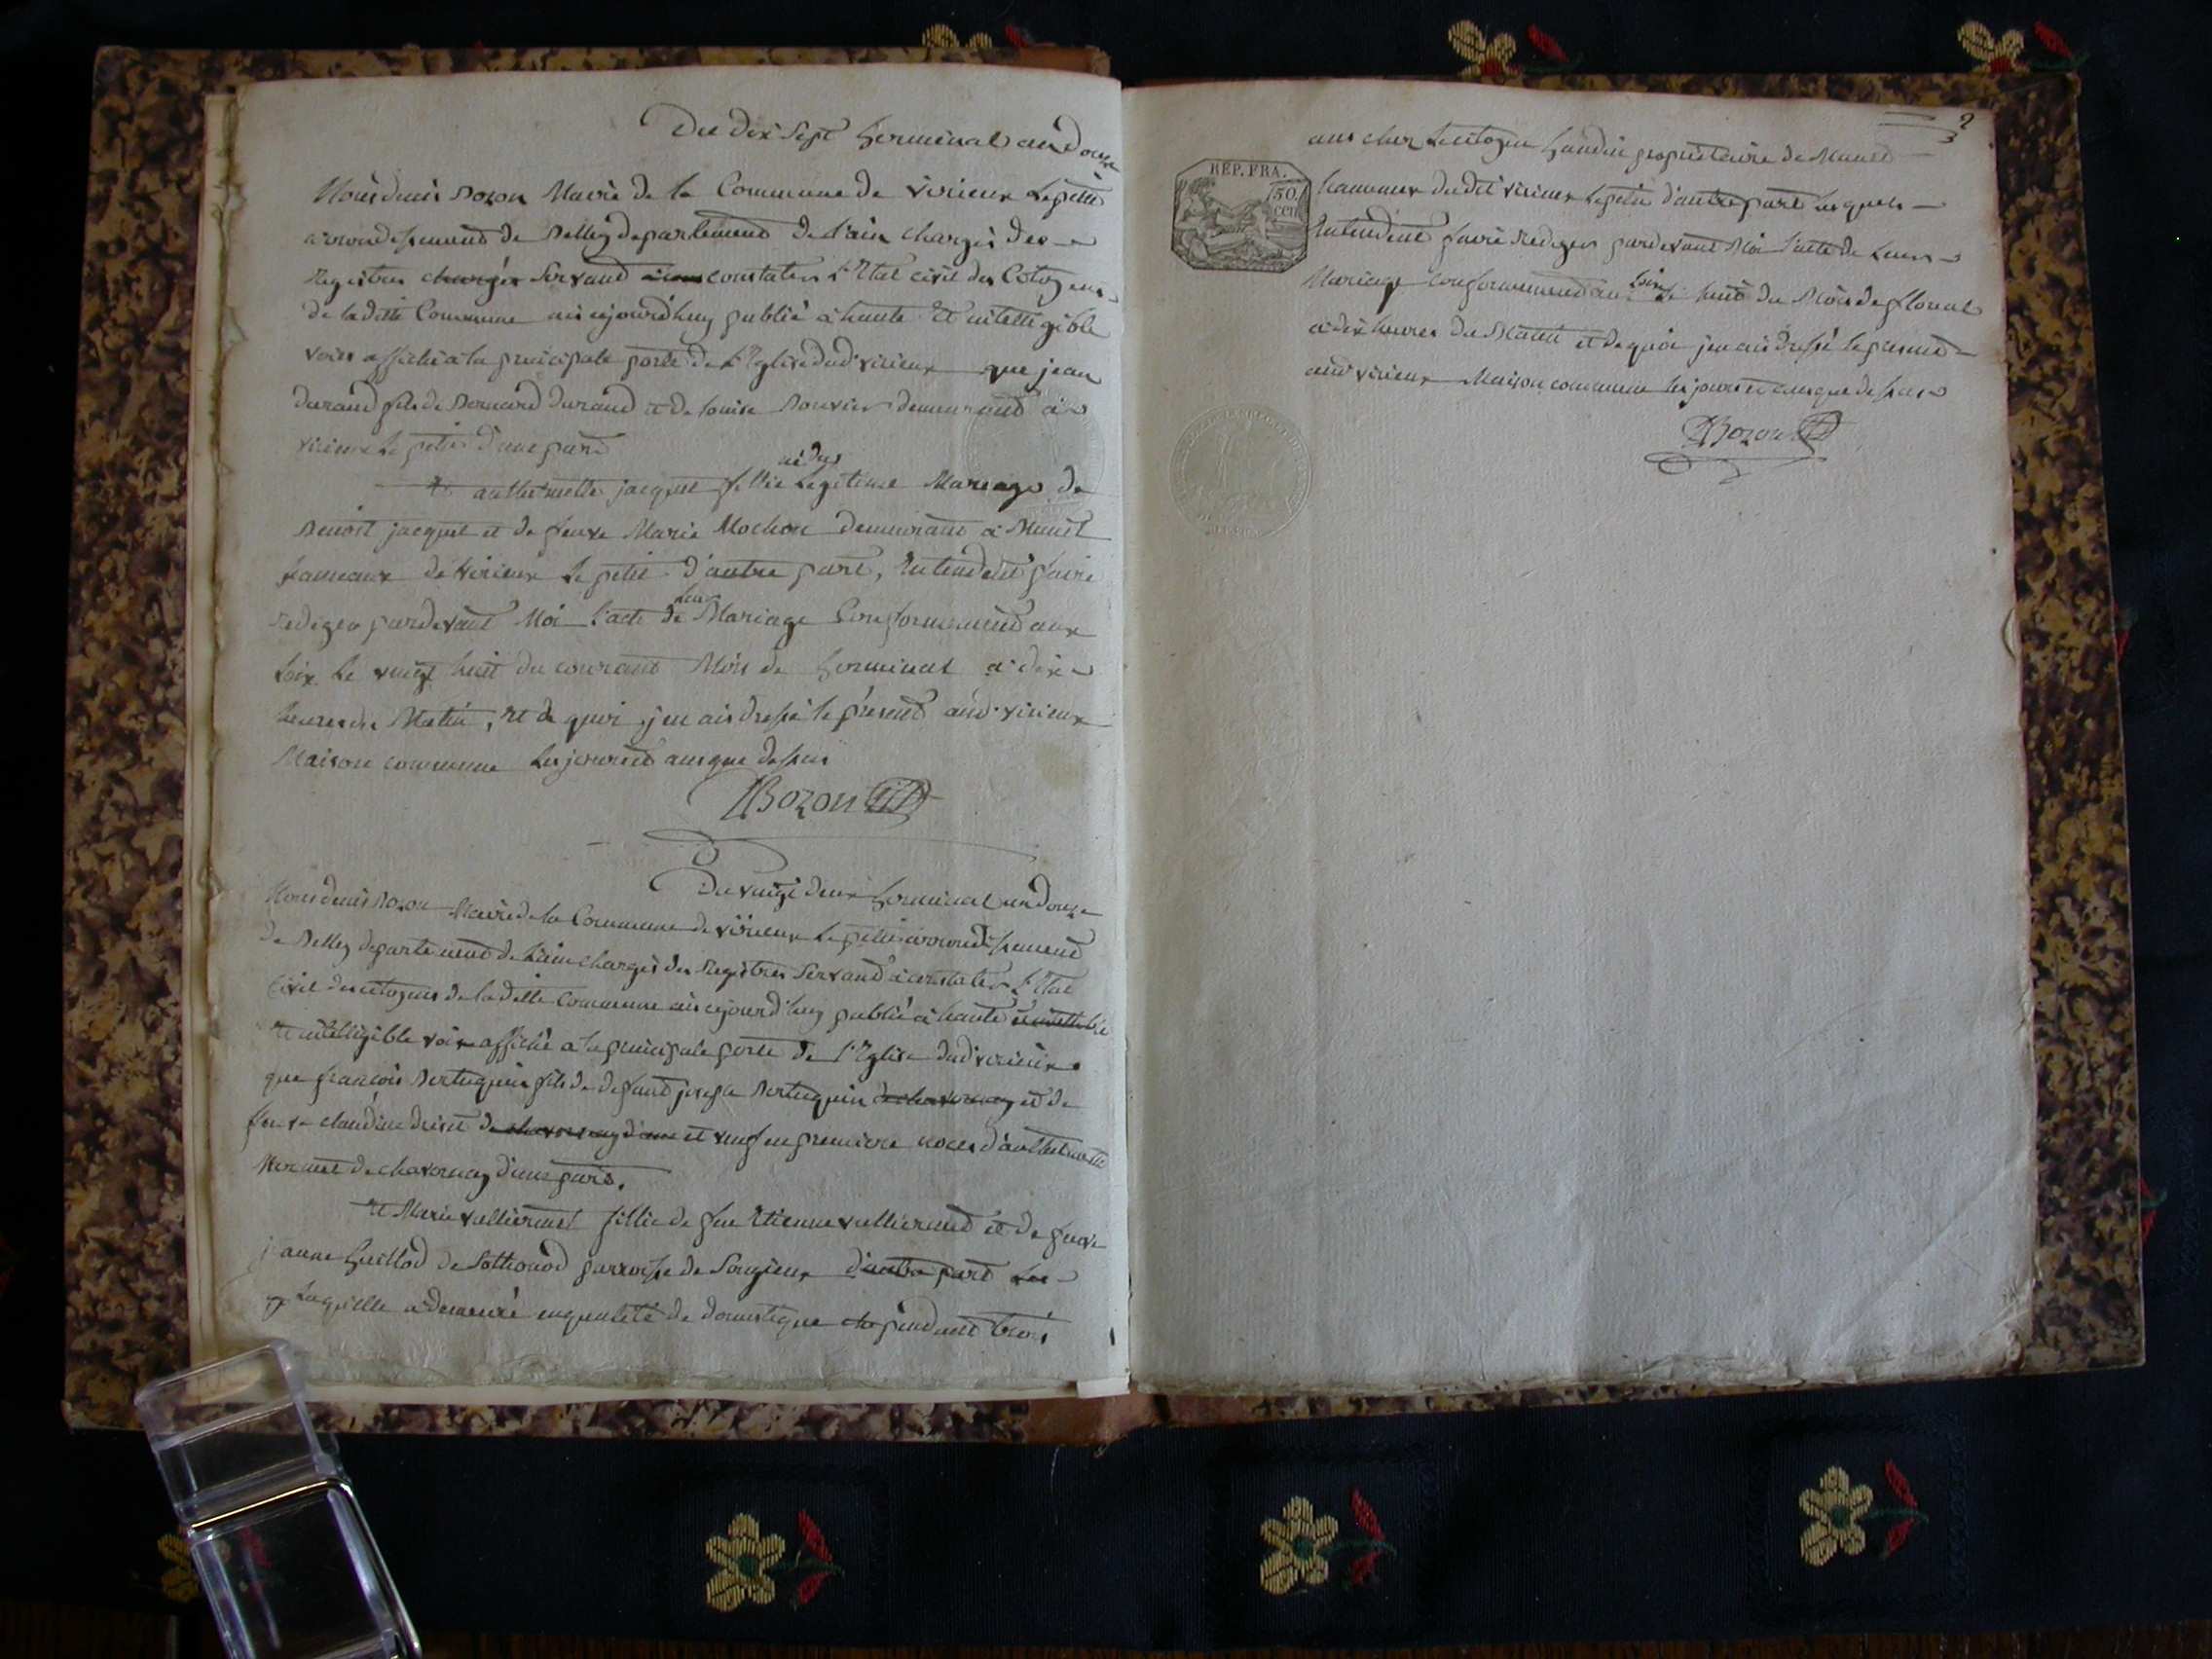 Du dix Sept Germinal an Douze
Nous denis Bozon Maire de la Commune de Virieux Le petit
arrondissement de Belley departement de l'ain chargés des
Registres chargés Servand constater L'Etat civil des Citoyens
de la ditte Commune ais aujourd'huy publié a haute Et intelligible
voix affiché a la principale porte de L'Eglise dud' virieux que jean
durand fils de Bernard durand et de louise Bouvier demeurant à
virieux le petit d'une part
Et anthelmette jacquet fillie né du Legitime Mariage de
Benoit jacquet et de feuve Marie Mochon demeurant à Munet
hameaux de Virieux Le petit d'autre part, Entendent faire
rediger pardevant Moi L'acte de leur Mariage Conformement aux
Loix Le vingt huit du courant Mois de Germinal a dix
heures du Matin, Et de quoi j'en ais dressé le présent aud' virieux
Maison commune Les jour et an que dessus
DBozon
Du vingt deux Germinal an douze
Nous denis Bozon Maire de la Commune de Virieux Le petit arrondissement
de Belley departement de L'ain chargés des Registres Servand a constater L'Etat
Civil des citoyens de la ditte Commune ais aujourd'huy publié a haute
Et intelligible voix affiché a la principale porte de L'Eglise dud' virieux
que françois Bertuquin fils de defunt joseph Bertuquin de chavornay et de
feuve claudine de chavornay d'une et veuf en premiere noces d'anthelmette
de chavornay d'une part.
Et Marie vulliermet fillie de feu Etienne vullierme et de feuve
jeanne Guillod de Sothonod parroisse de Songieux d'autre part Les
Laquelle a demeuré en qualité de domestique pendant trois
2
ans chez Le citoyen Gaudin proprietaire de Munet
REP. FRA.
50
CEN
hameaux dudit virieux Le petit d'autre part Lesquels
Entendent faire rediger pardevant Moi L'acte de Leurs
Mariage conformement au Loix Le huit du Mois de floreal
a dix heures du Matin et de quoi j'en ais dressé le present
aud' virieux Maison commune les jour et an que dessus
DBozon